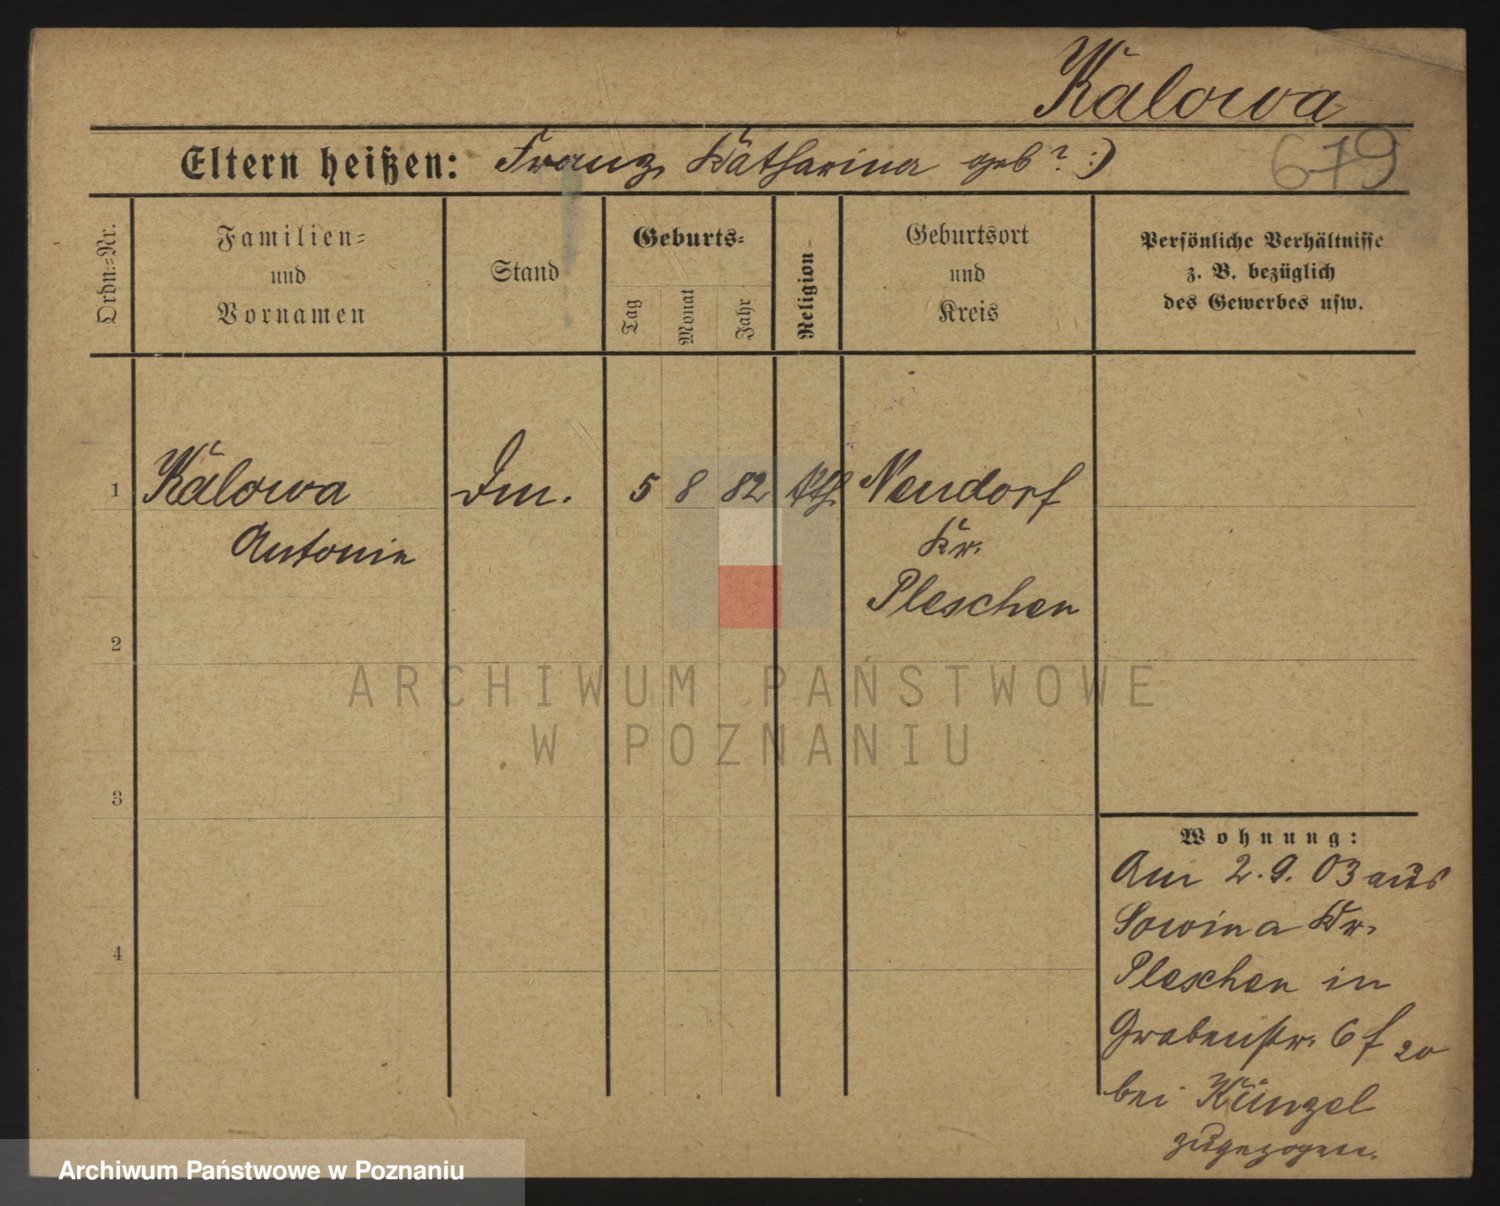 Kalowa
Eltern heißen: Franz Katharina geb ? :)
679
Ordn.=Nr.
Familien=
und
Vornamen
Stand
Geburts=
Tag
Monat
Jahr
Religion
Geburtsort
und
Kreis
Persönliche Verhältnisse
z. B. bezüglich
des Gewerbes usw.
1 Kalowa 5 8 82 kth. Neudorf
Antonie Kr.
Pleschen
2
ARCHIWUM PAŃSTWOWE
W POZNANIU
3
Wohnung:
Am 2.9.03 aus
Sowina Kr.
4
Pleschen in
Grabenstr. 6 f 20
bei Künzel
zugezogen.
Archiwum Państwowe w Poznaniu